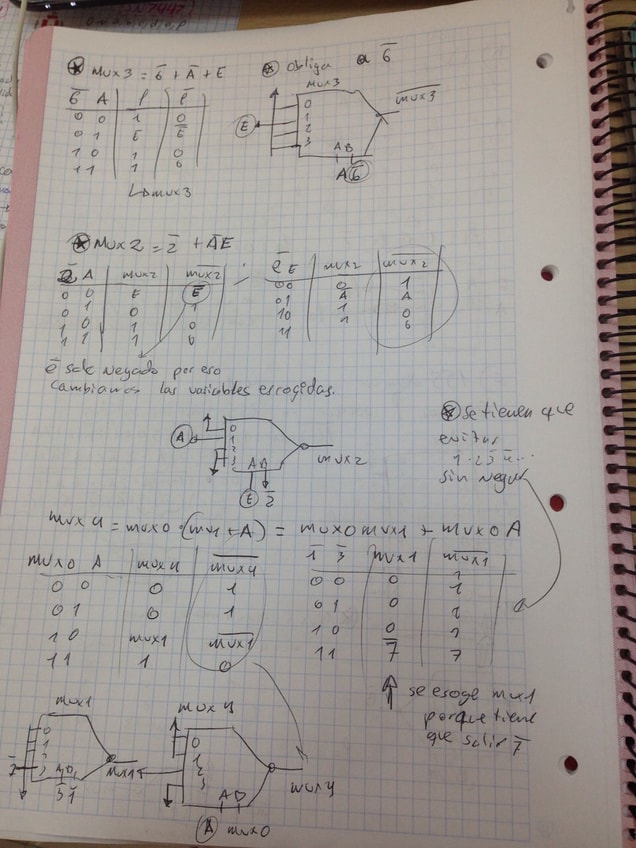 7447
mux3 = 6̅ + A̅ + E
Obliga a 6̅
6̅ A f f̅
0 0 1 0
0 1 E E̅
1 0 1 0
1 1 1 0
mux3
mux3
0
1
2
3
E
A B
A 6̅
m̅u̅x̅3̅
mux2 = 2̅ + A̅E
2̅ A mux2 m̅u̅x̅2̅
0 0 E E̅
0 1 0 1
1 0 1 0
1 1 1 0
2̅ E mux2 m̅u̅x̅2̅
00 0 1
01 A̅ A
10 1 0
11 1 0
e̅ sale negado por eso
cambiamos las variables escogidas.
A
0
1
2
3
A B
mux2
E 2̅
Se tienen que
evitar
sin negar
mux4 = mux0·(mux1+A) = mux0mux1 + mux0A
mux0 A mux4 m̅u̅x̅4̅
0 0 0 1
0 1 0 1
1 0 mux1 m̅u̅x̅1̅
1 1 1 0
1̅ 3̅ mux1 m̅u̅x̅1̅
0 0 0 1
0 1 0 1
1 0 0 1
1 1 7̅ 7
se escoge mux1
porque tiene
que salir 7̅
mux1
mux4
0
1
2
3
7̅
3̅ 1̅
mux1
0
1
2
3
A B
A mux0
mux4